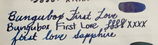 Bungubox First Love
Bungubox First Love XXXX
first love Sapphire